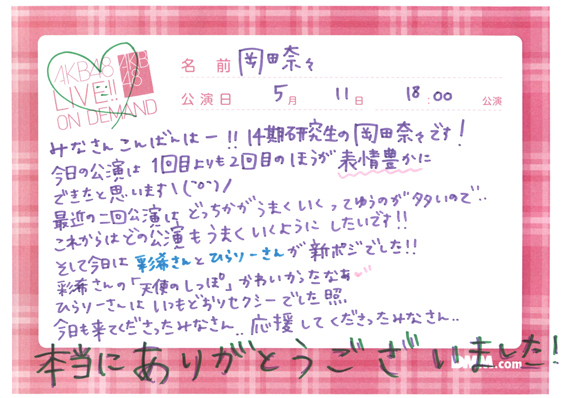 AKB48
LIVE!!
ON DEMAND
AKB
48
名 前 岡田奈々
公演日 5月 11日 18:00 公演
みなさんこんばんはー!! 14期研究生の岡田奈々です!
今日の公演は1回目よりも2回目のほうが表情豊かに
できたと思います\(^o^)/
最近の二回公演は、どっちかがうまくいくってゆうのが多いので..
これからはどの公演もうまくいくようにしたいです!!
そして今日は 彩希さんとひらりーさんが新ポジでした!!
彩希さんの「天使のしっぽ」かわいかったなあ
ひらりーさんはいつもどおりセクシーでした照
今日も来てくださったみなさん.. 応援してくださったみなさん..
本当にありがとうございました!
.com